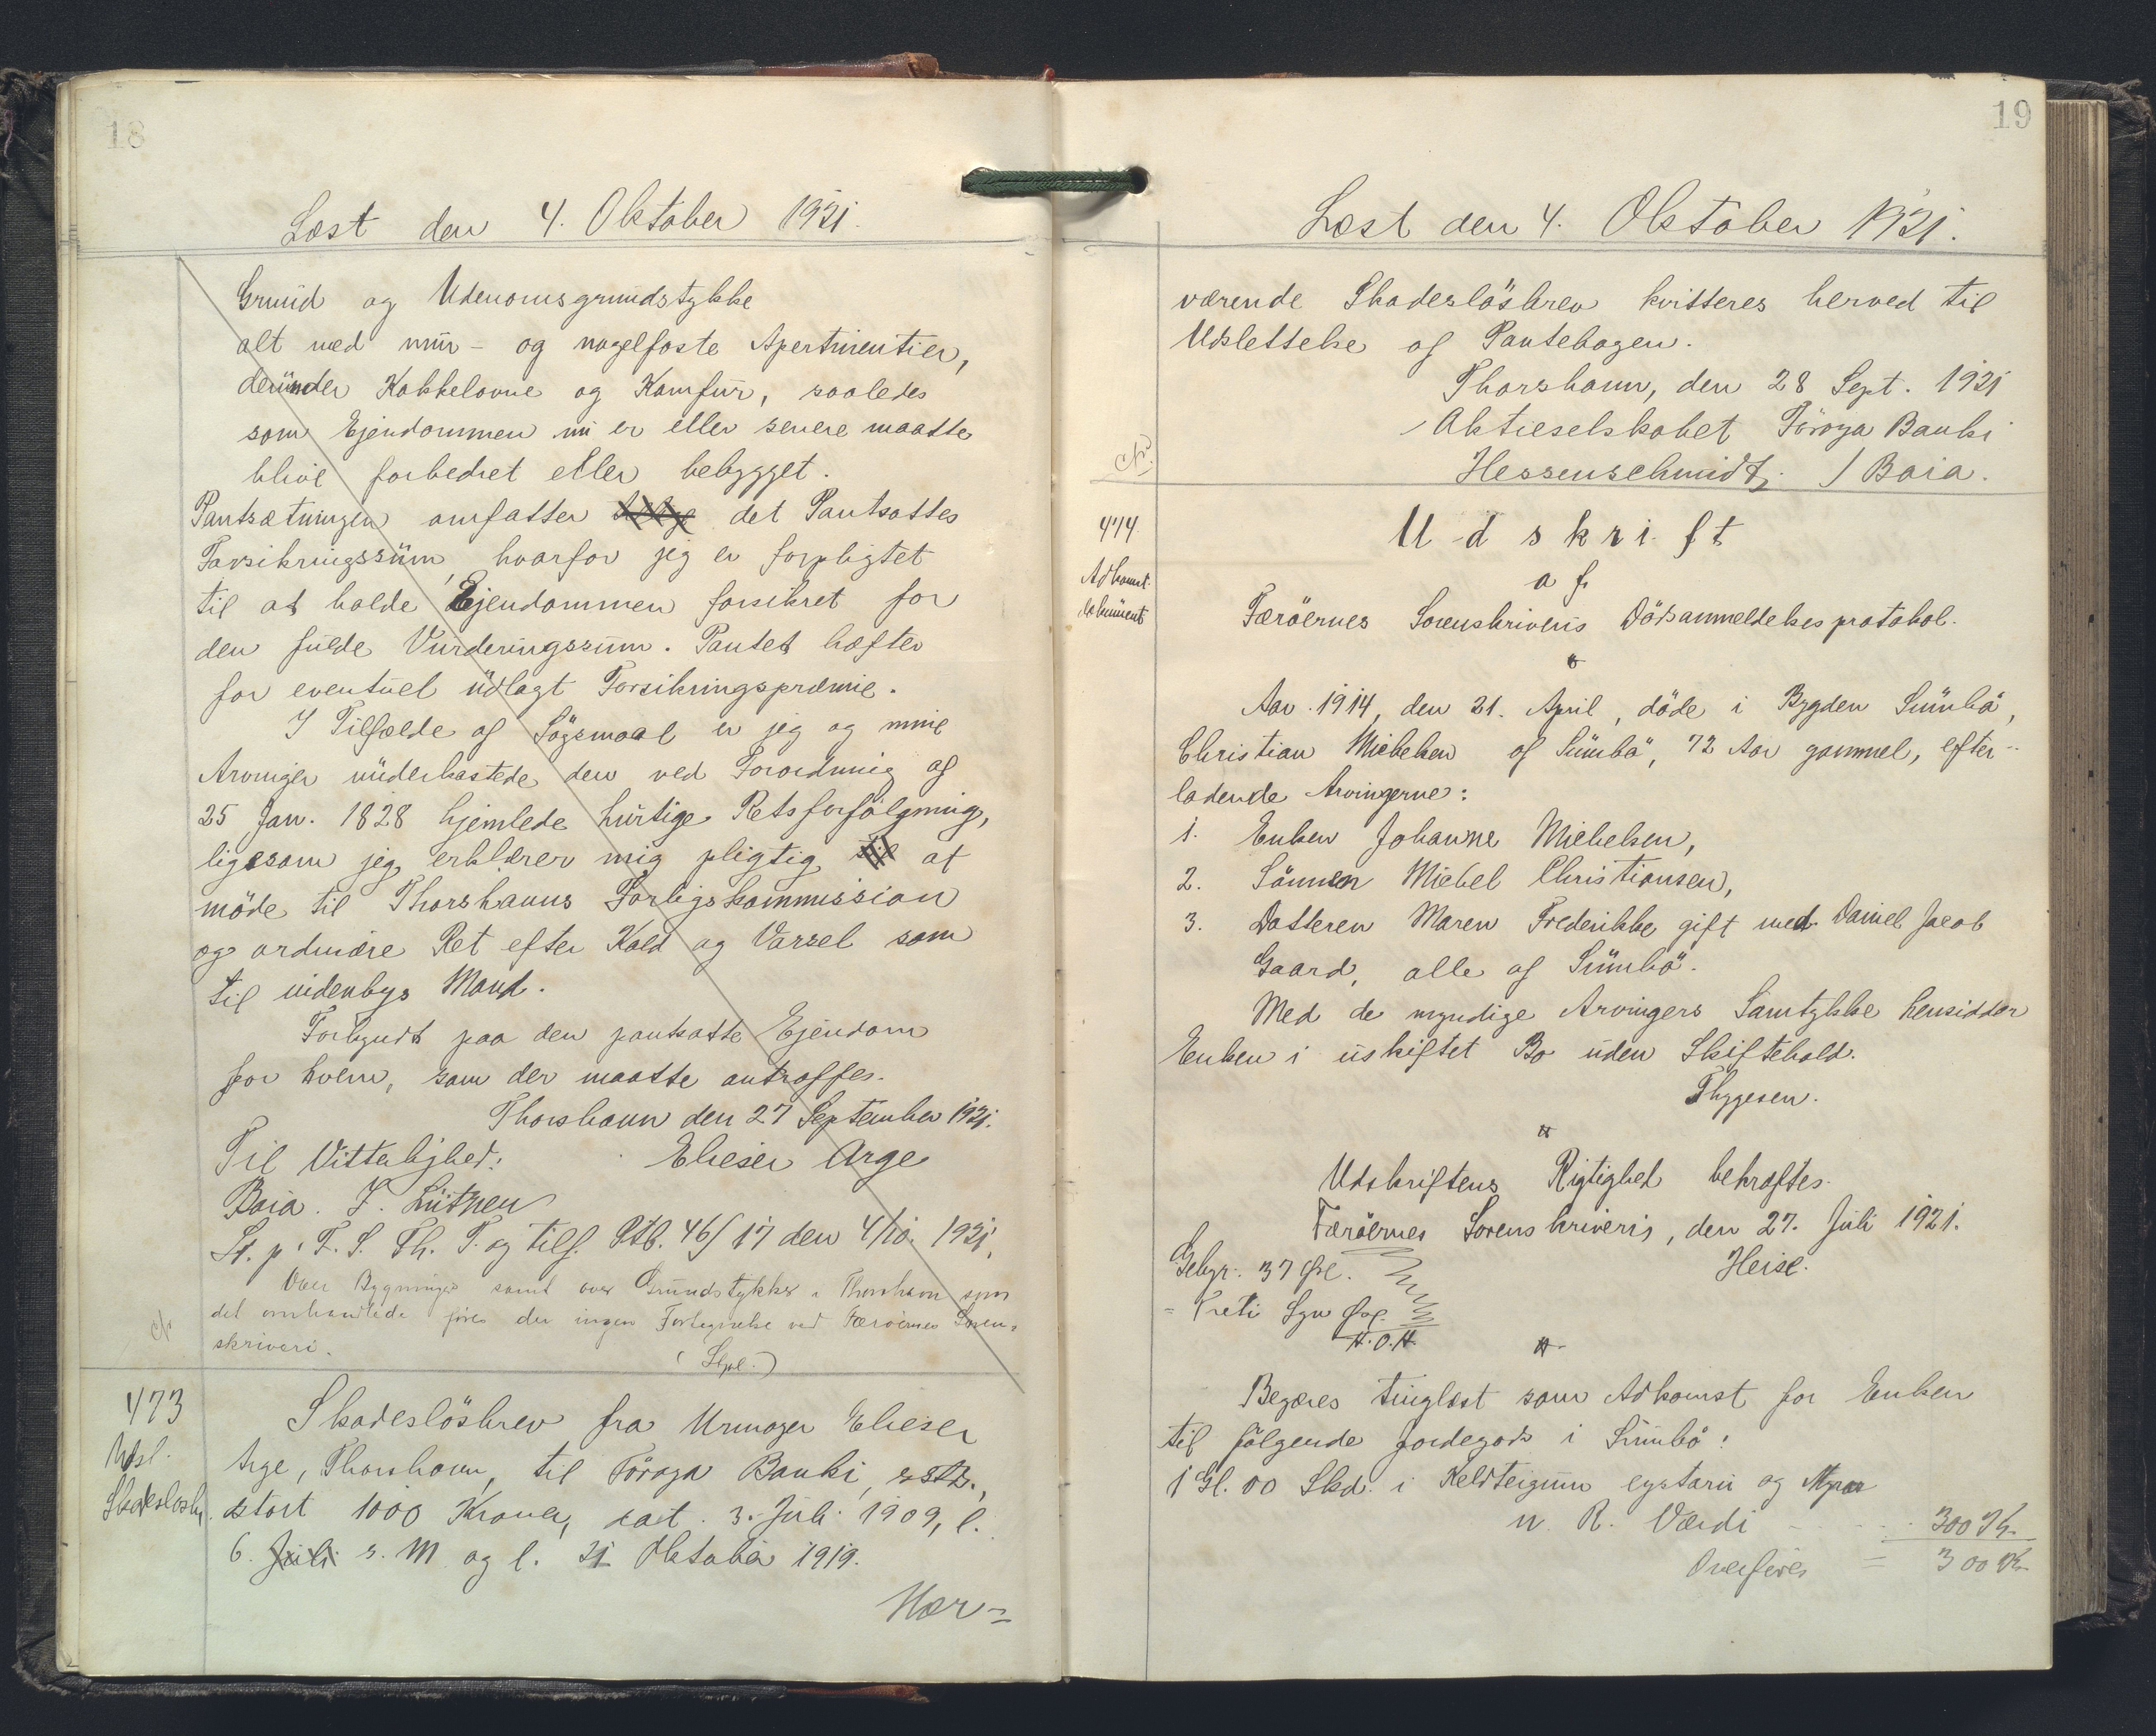 18
Læst den 4. Oktober 1921.
Grund og Udenomsgrundstykke
alt med mur- og nagelfaste Apertinentier,
derunder Kakkelovne og Komfur, saaledes
som Ejendommen nu er eller senere maatte
blive forbedret eller bebygget.
Pantsætningen omfatter det Pantsattes
Forsikringssum, hvorfor jeg er forpligtet
til at holde Ejendommen forsikret for
den fulde Vurderingssum. Pantet hæfter
for eventuel udlagt Forsikringspræmie.
I Tilfælde af Søgsmaal er jeg og mine
Arvinger underkastede den ved Forordning af
25 Jan. 1828 hjemlede hurtige Retsforfølgning,
ligesom jeg erklærer mig pligtig at
møde til Thorshavns Forligskommission
og ordinære Ret efter Kald og Varsel som
til indenbys Mand.
Forbyudt paa den pantsatte Ejendom
for hvem, som der maatte antræffes.
Thorshavn den 27 September 1921.
Til Vitterlighed: Elieser Arge
Baia. J. Lützen
St. p' F. S. Th. T. og tilf. Ptb. 46/17 den 4/10. 1921.
Over Bygninger samt over Grundstykker i Thorshavn som
det omhandlede føres der ingen Fortegnelse ved Færøernes Soren-
skriveri.
473
Udsl.
Skadesløsbr.
Skadesløsbrev fra Urmager Elieser
Arge, Thorshavn, til Föroya Banki, sstds.,
stort 1000 Kroner, dat. 3. Juli 1909, l.
6. Juli s. M og l. 21 Oktober 1919.
Nær-
19
Læst den 4. Oktober 1921.
værende Skadesløsbrev kvitteres herved til
Udslettelse af Pantebogen.
Thorshavn, den 28 Sept. 1921
Aktieselskabet Föroya Banki
Hessenschmidt / Baia.
474
Adkomst
dokument
Udskrift
af
Færöernes Sorenskriveris Dödsanmeldelsesprotokol.
Aar 1914, den 21. April, döde i Bygden Sumbö,
Christian Michelsen af Sumbö, 72 Aar gammel, efter-
ladende Arvingerne:
1. Enken Johanne Michelsen,
2. Sönnen Michel Christiansen,
3. Datteren Maren Frederikke gift med Daniel Jacob
Gaard, alle af Sumbö.
Med de myndige Arvingers Samtykke hensidder
Enken i uskiftet Bo uden Skiftehold.
Thygesen.
Udskriftens Rigtighed bekræftes.
Færöernes Sorenskriveri, den 27. Juli 1921.
Heise.
Gebyr: 37 Øre.
= Treti Syv Øre
H.O.H.
Begæres tinglæst som Adkomst for Enken
til fölgende Jordegods i Sumbö:
1 Gl. 00 Skd. i Keldteigum eystari og Myrar
n. R. Værdi - - - 300 Kr.
Overføres = 300 Kr